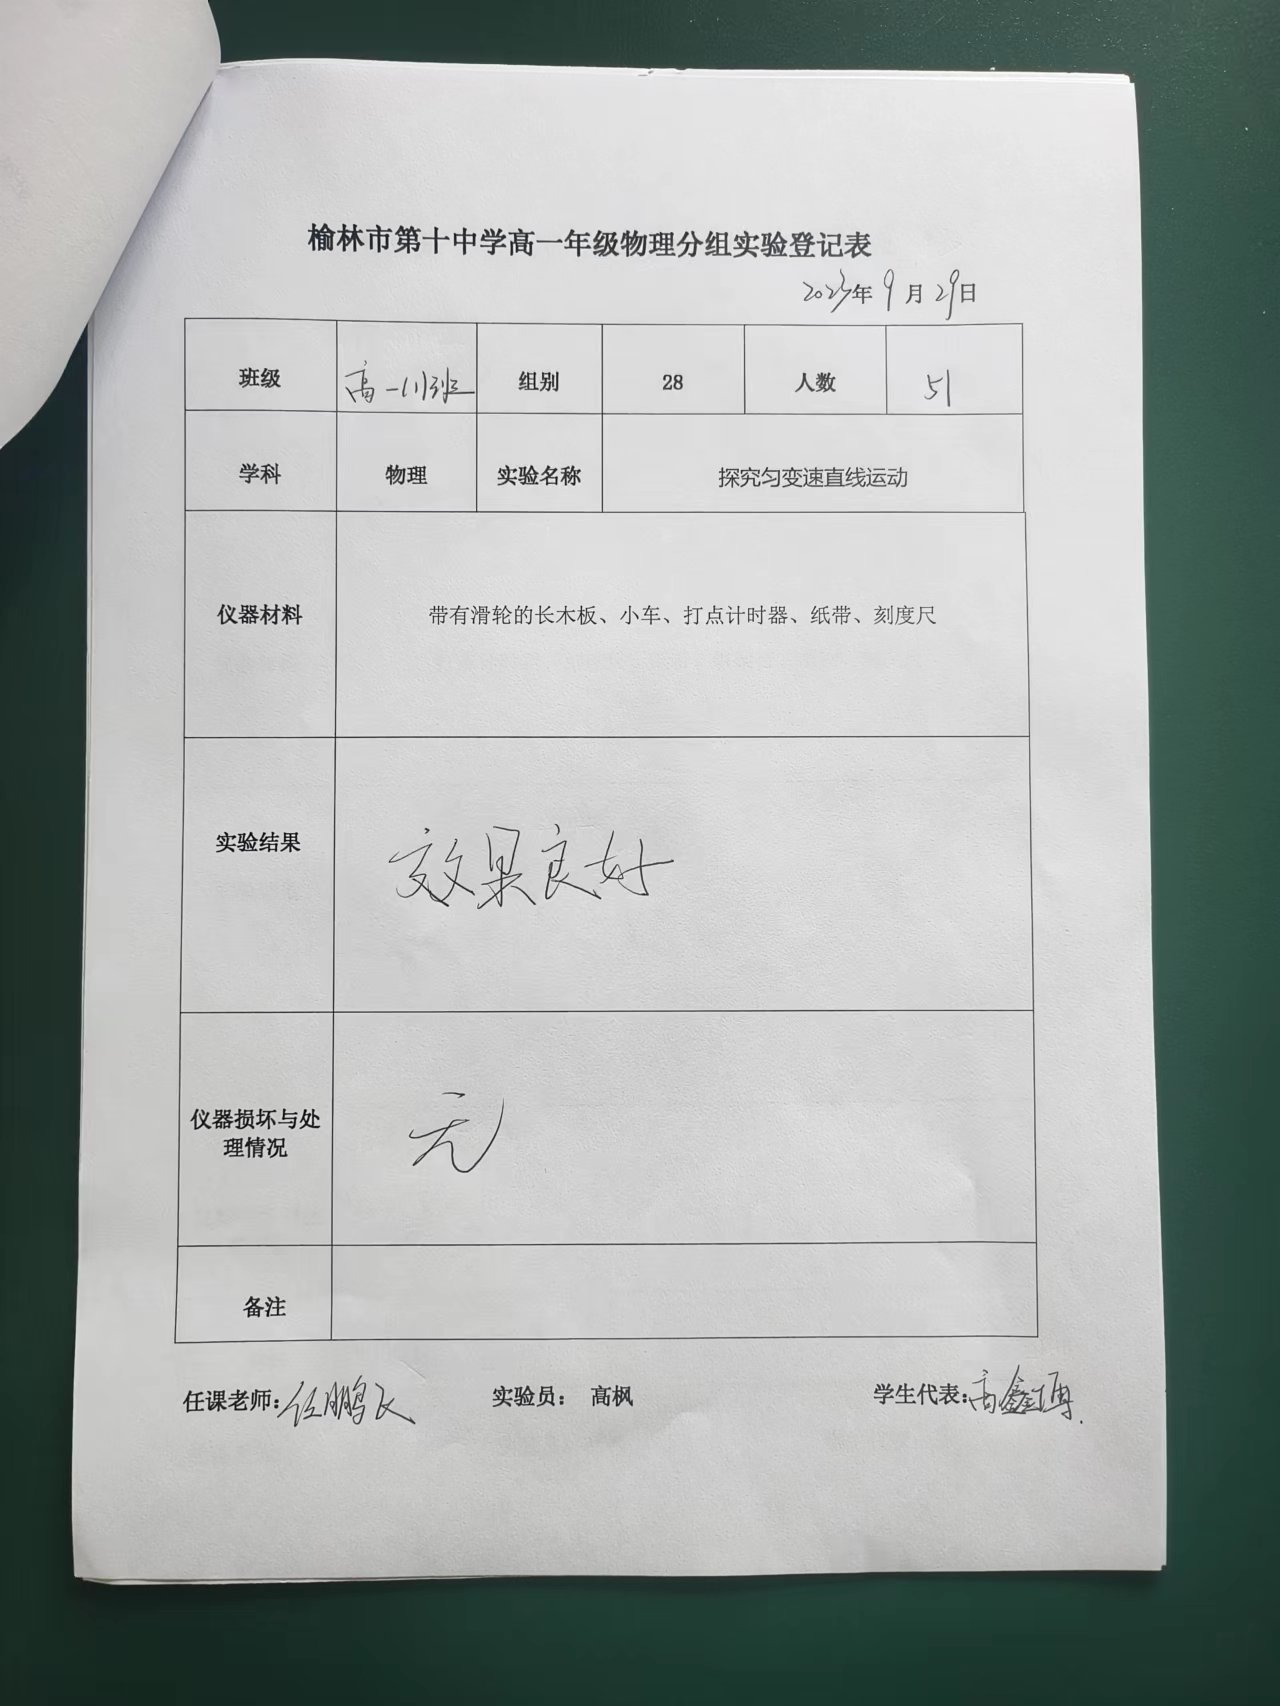 榆林市第十中学高一年级物理分组实验登记表
2023年9月29日
班级 高一(1)班 组别 28 人数 51
学科 物理 实验名称 探究匀变速直线运动
仪器材料 带有滑轮的长木板、小车、打点计时器、纸带、刻度尺
实验结果 效果良好
仪器损坏与处
理情况
无
备注
任课老师:任鹏飞 实验员： 高枫 学生代表:高鑫博